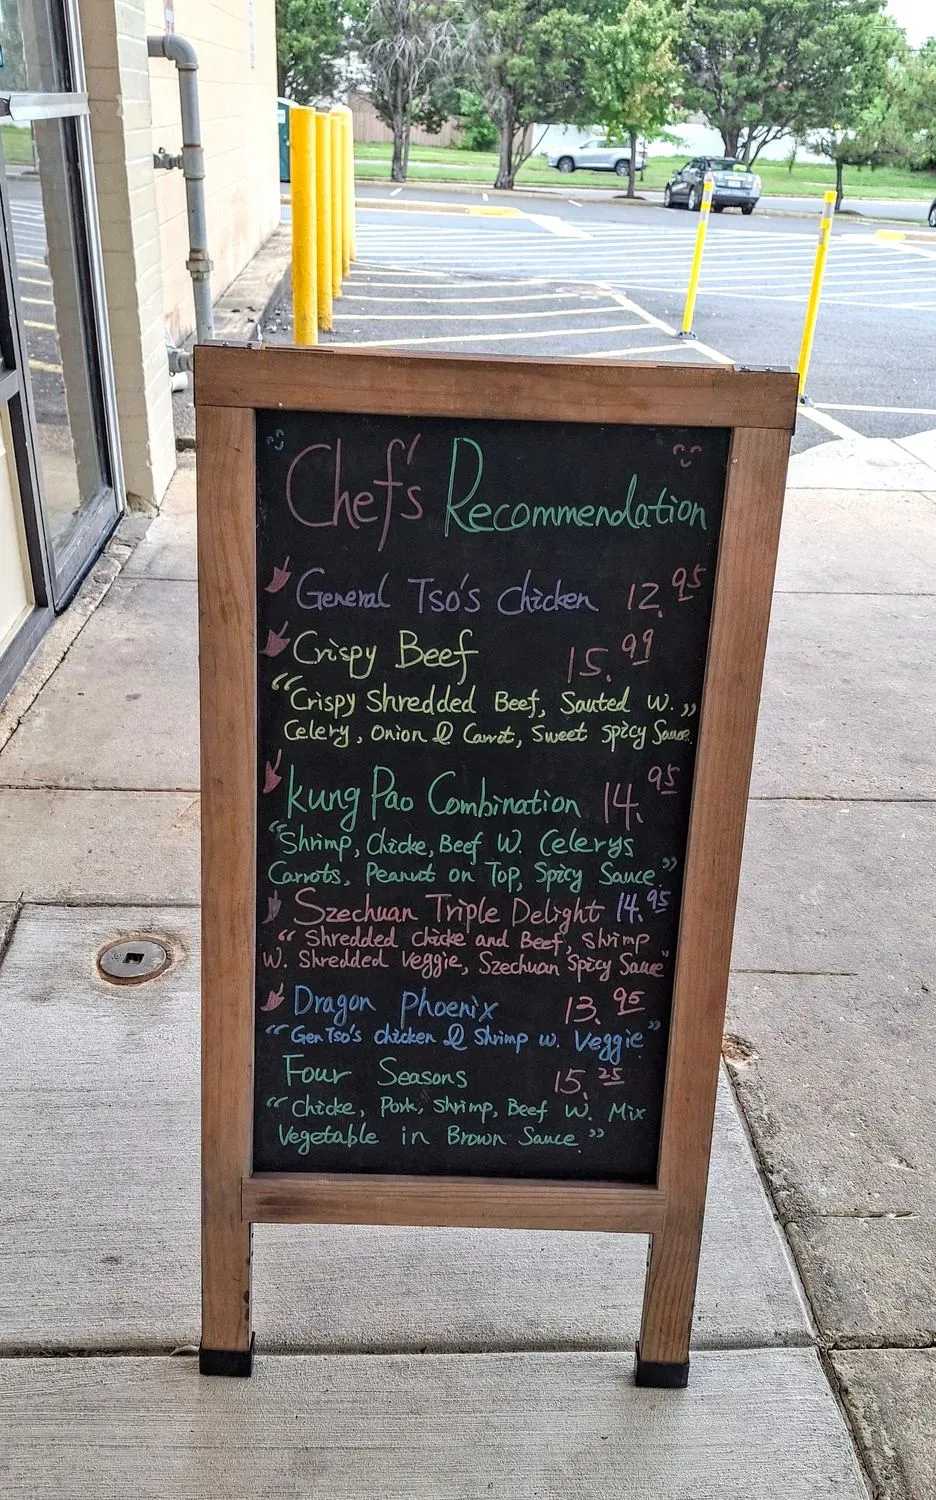 Chef's Recommendation
General Tso's Chicken 12.95
Crispy Beef 15.99
"Crispy Shredded Beef, Sauted W.
Celery, Onion & Carrot, Sweet Spicy Sauce."
Kung Pao Combination 14.95
"Shrimp, Chicke, Beef W. Celerys
Carrots, Peanut on Top, Spicy Sauce."
Szechuan Triple Delight 14.95
"Shredded Chicke and Beef, Shrimp
W. Shredded Veggie, Szechuan Spicy Sauce"
Dragon Phoenix 13.95
"Gen Tso's Chicken & Shrimp W. Veggie"
Four Seasons 15.25
"Chicke, Pork, Shrimp, Beef W. Mix
Vegetable in Brown Sauce."